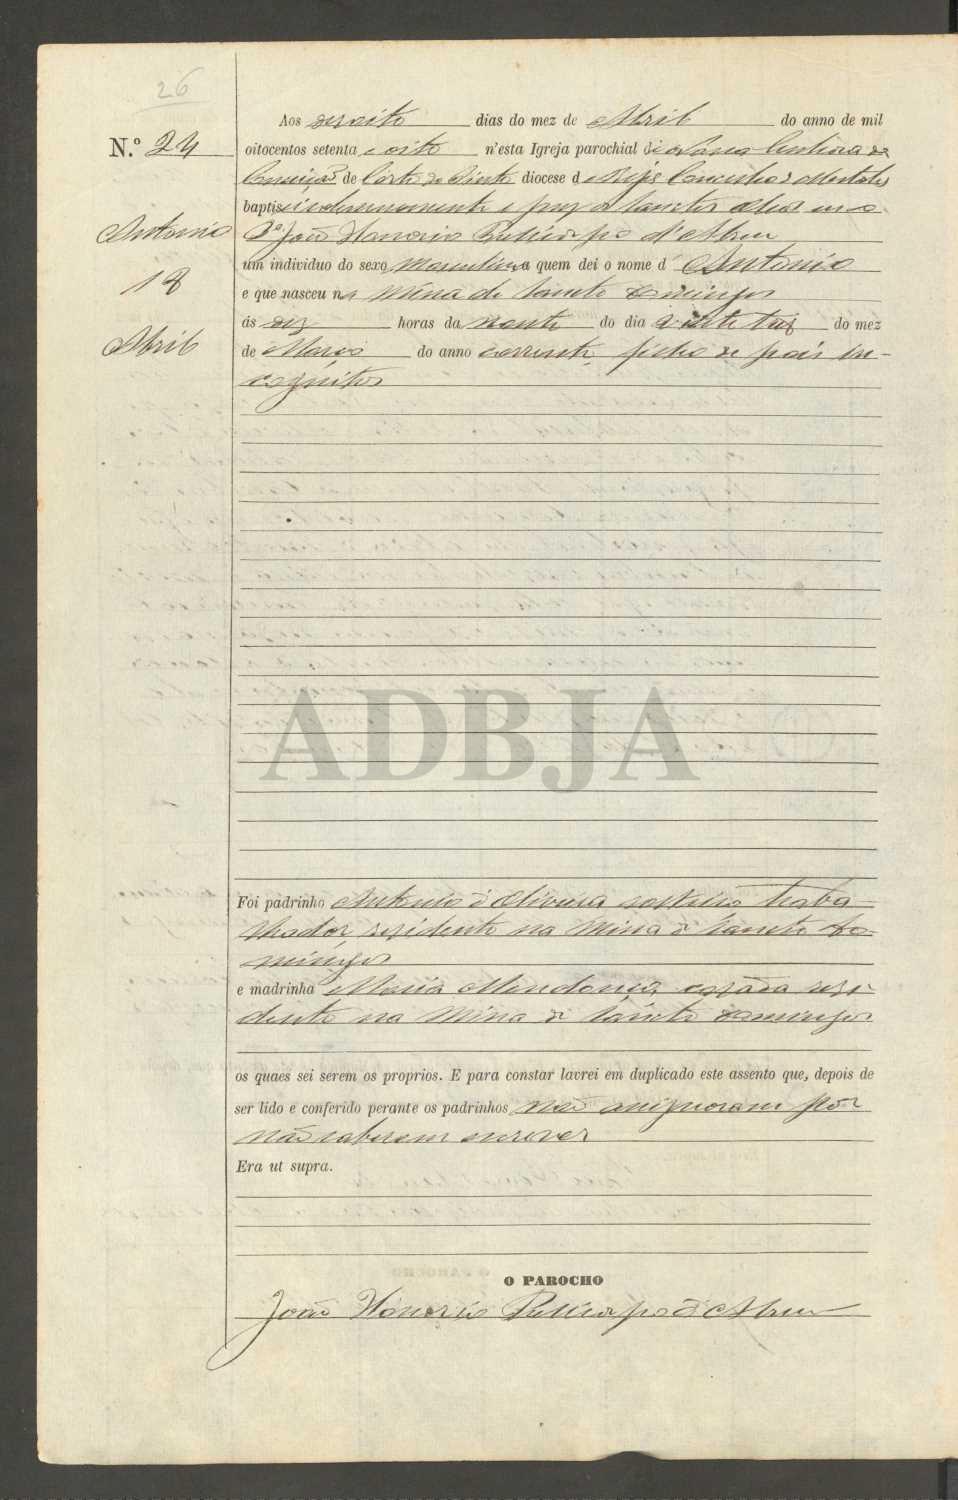 26
N.º 24
Antonio
18
Abril
Aos desoito dias do mez de Abril do anno de mil
oitocentos setenta e oito n'esta Igreja parochial de Nossa Senhora da
Conceição de Corte do Pinto diocese de Beja Concelho de Mertola
baptisei solemnemente e puz os Sanctos Oleos eu o
P.e João Honorio Policarpo d'Abreu
um individuo do sexo Masculino a quem dei o nome d' Antonio
e que nasceu na Mina de Sancto Domingos
ás dez horas da noute do dia vinte tres do mez
de Março do anno corrente, filho de pais in-
cognitos
ADBJA
Foi padrinho Antonio d'Oliveira solteiro traba
lhador, residente na Mina de Sancto Do-
mingos
e madrinha Maria Mendonça, casada resi-
dente na Mina de Sancto Domingos
os quaes sei serem os proprios. E para constar lavrei em duplicado este assento que, depois de
ser lido e conferido perante os padrinhos não assignoram por
não saberem escrever
Era ut supra.
O PAROCHO
João Honorio Policarpo d'Abreu